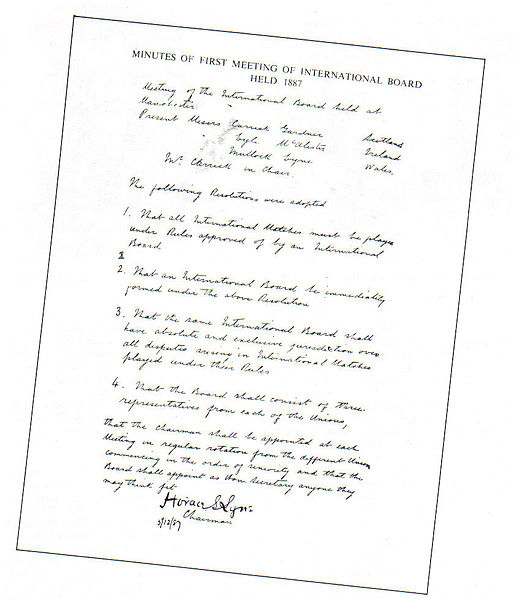 MINUTES OF FIRST MEETING OF INTERNATIONAL BOARD
HELD 1887
Meeting of the International Board held at
Manchester
Present Messrs Carrick Gardner Scotland
" Lyle McAlister Ireland
Mullock Lyne Wales.
Mr. Carrick in Chair.
The following Resolutions were adopted
1. That all International Matches must be played
under Rules approved of by an International
Board
2. That an International Board be immediately
formed under the above Resolution
3. That the same International Board shall
have absolute and exclusive jurisdiction over
all disputes arising in International Matches
played under their Rules
4. That the Board shall consist of three
representatives from each of the Unions,
that the Chairman shall be appointed at each
Meeting in regular rotation from the different Unions
commencing in the order of seniority and that the
Board shall appoint as Hon Secretary anyone they
may think fit
Horace S Lyne
Chairman
5/12/87